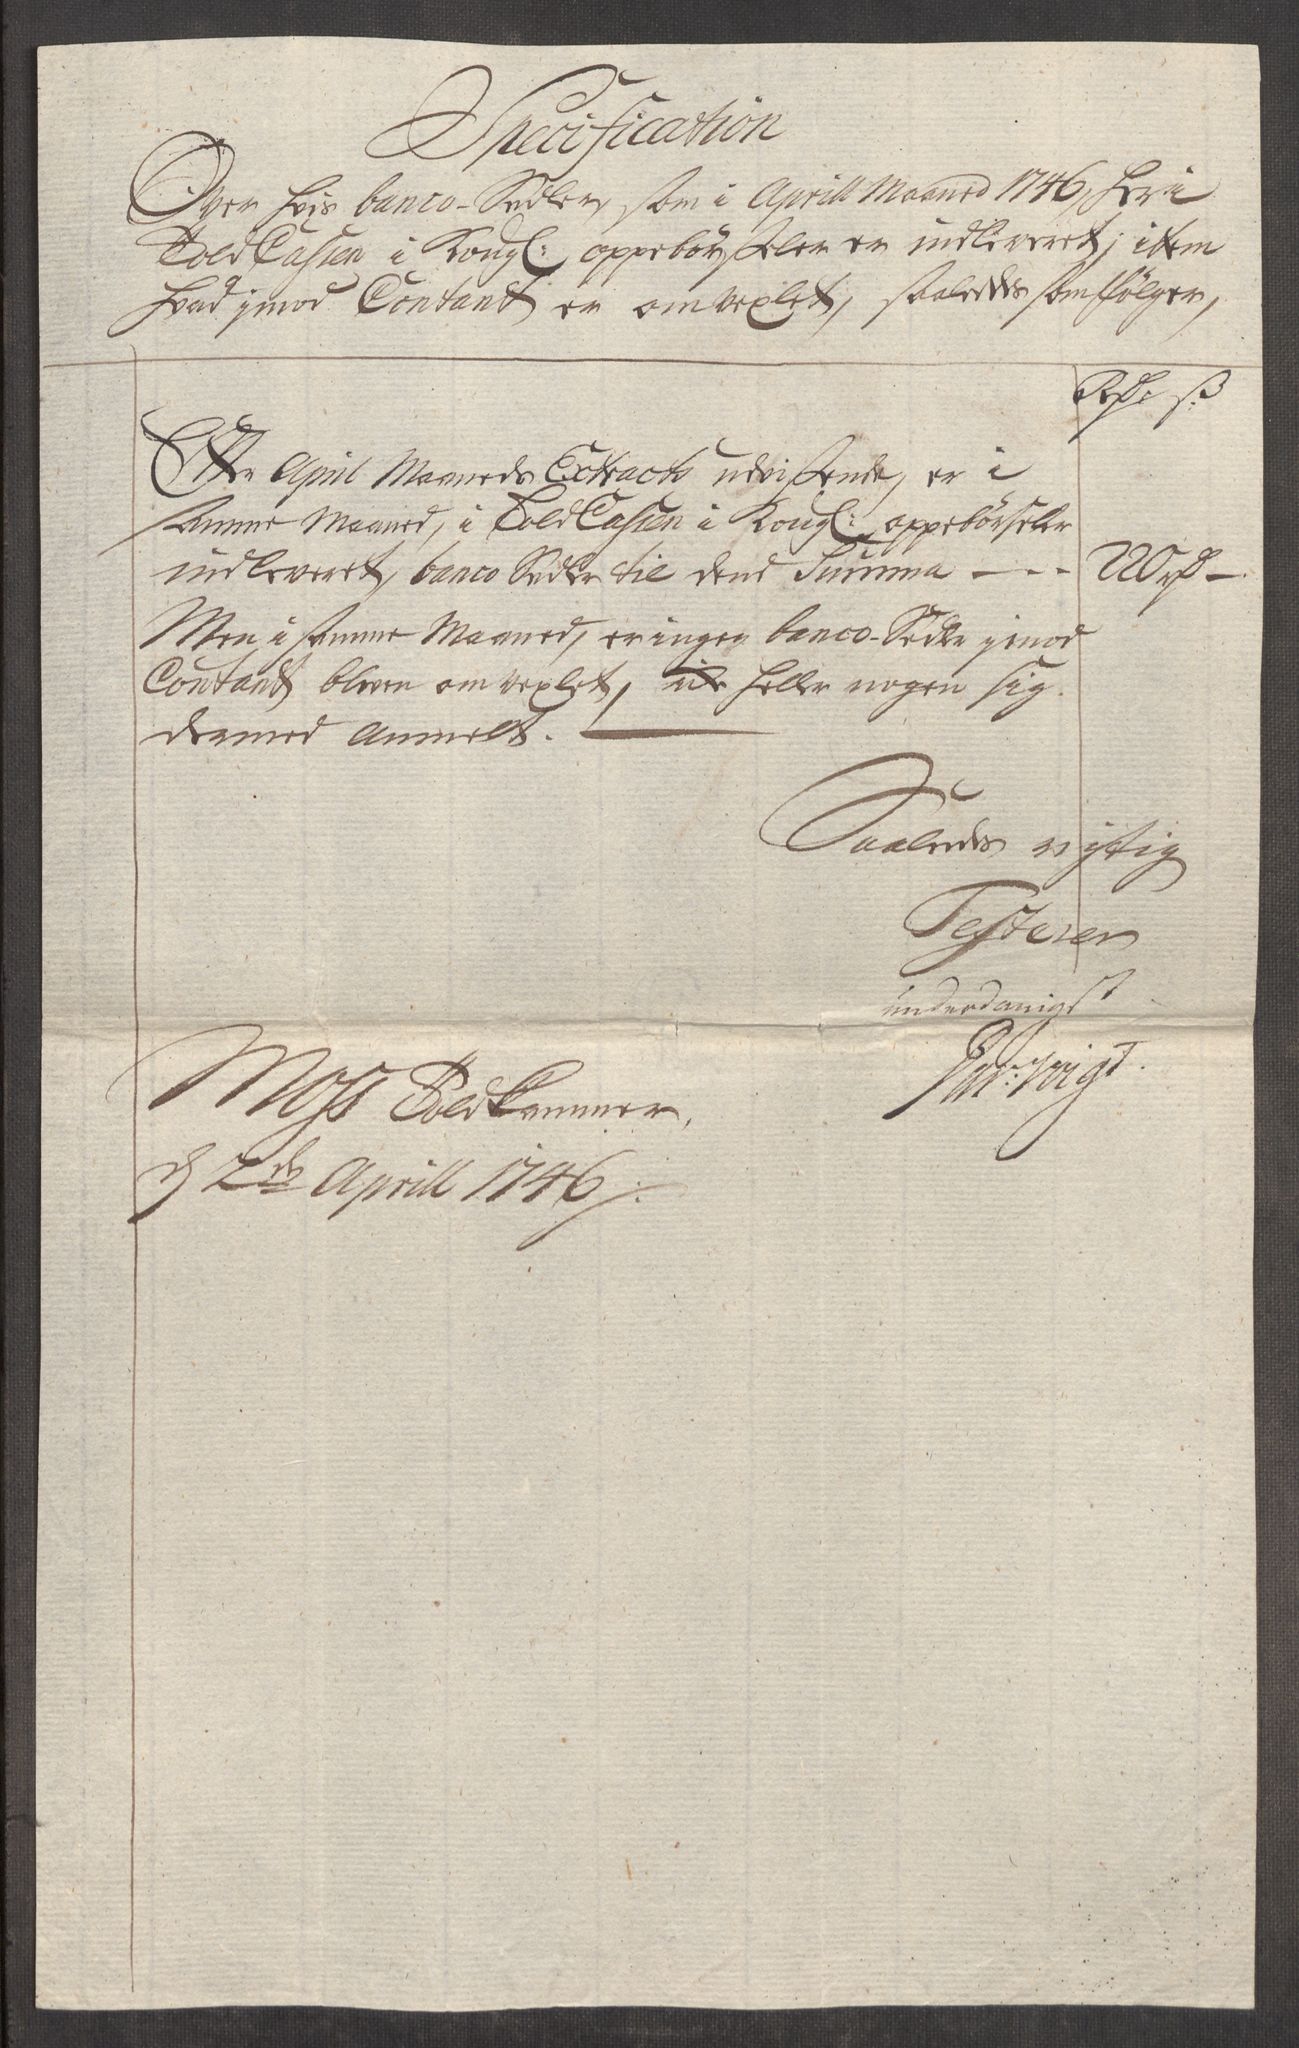 Specification
Over hvis banco-Sedler som i Aprill Maaned 1746, her i
Told Cassen i Kongl: oppebørseler er indleveret; item
hvad imod Contant er omvexlet, saaledes som følger,
Rdr s:
Efter April Maaneds Extracts udvisende, er i
samme Maaned, i Told Cassen i Kongl: oppebørseler
indleveret, banco Sedler til dend Summa --- 220 rdr -
Men i samme Maaned, er ingen banco-Sedler imod
Contant bleven omvexlet, ei heller nogen sig
dermed anmelt.
Saaledes rigtig
Testerer
underdanigst
Voigt.
Moss Told Kammer,
d 2de Aprill 1746